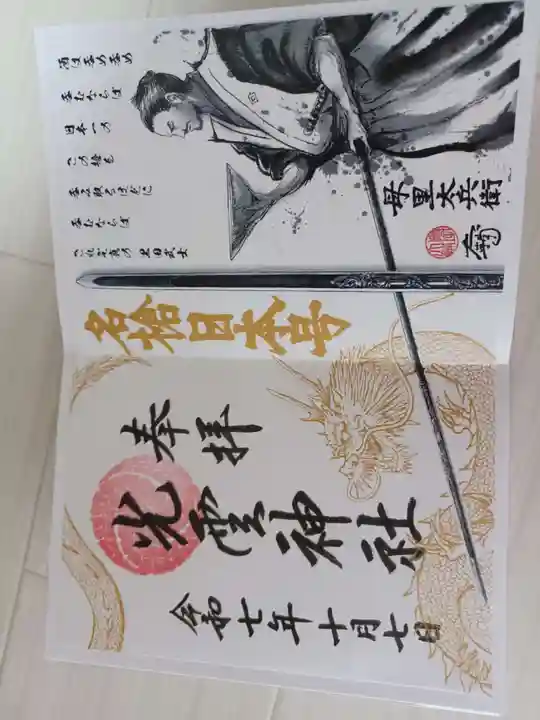 酒は呑め呑め
呑むならば
日本一の
この槍を
呑み取るほどに
呑むならば
これぞ真の黒田武士
母里太兵衛
名槍日本号
奉拝
光雲神社
令和七年十月七日